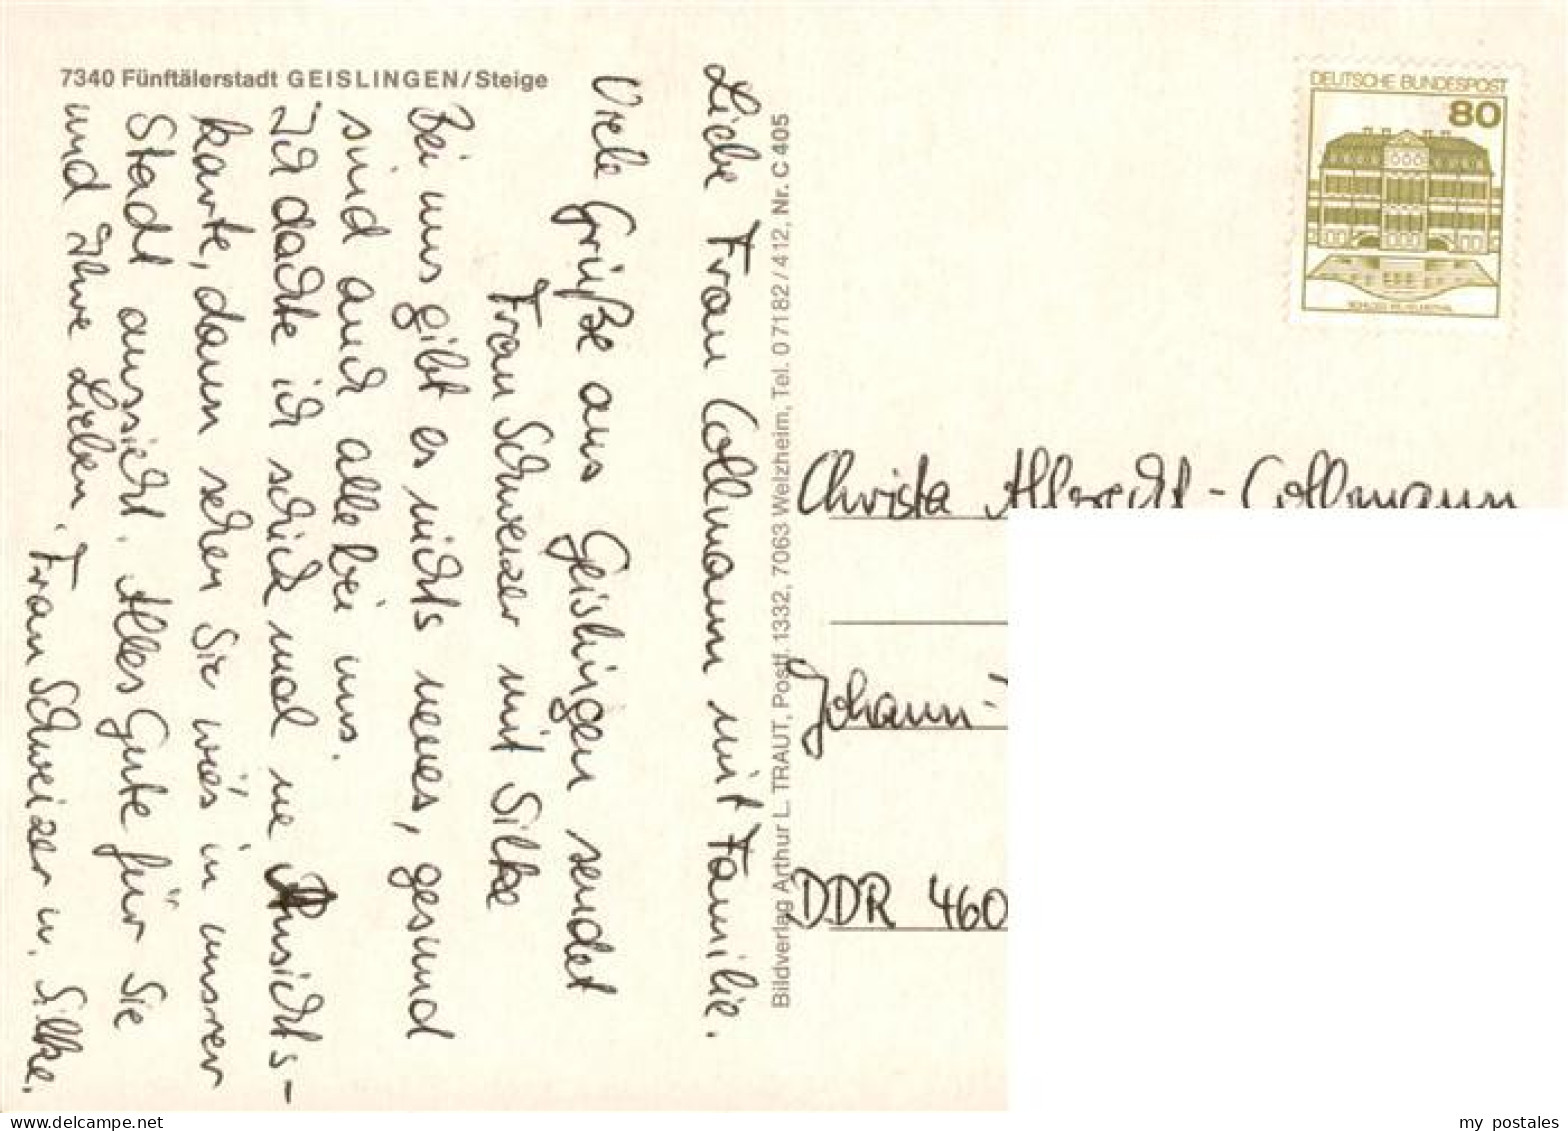 7340 Fünftälerstadt GEISLINGEN/Steige
Liebe Frau Collmann mit Familie.
Viele Grüße aus Geislingen sendet
Frau Schweizer mit Silke
Bei uns gibt es nichts neues, gesund
sind auch alle bei uns.
Ich dachte ich schick mal ne Ansichts-
karte, dann sehen Sie wie's in unsrer
Stadt aussieht. Alles Gute für Sie
und Ihre Lieben. Frau Schweizer u. Silke.
Bildverlag Arthur L. TRAUT, Postf. 1332, 7063 Welzheim, Tel. 0 71 82 / 4 12, Nr. C 405
DEUTSCHE BUNDESPOST
80
SCHLOSS WILHELMSTHAL
Christa Albrecht-Collmann
Johann
DDR 460
my postales